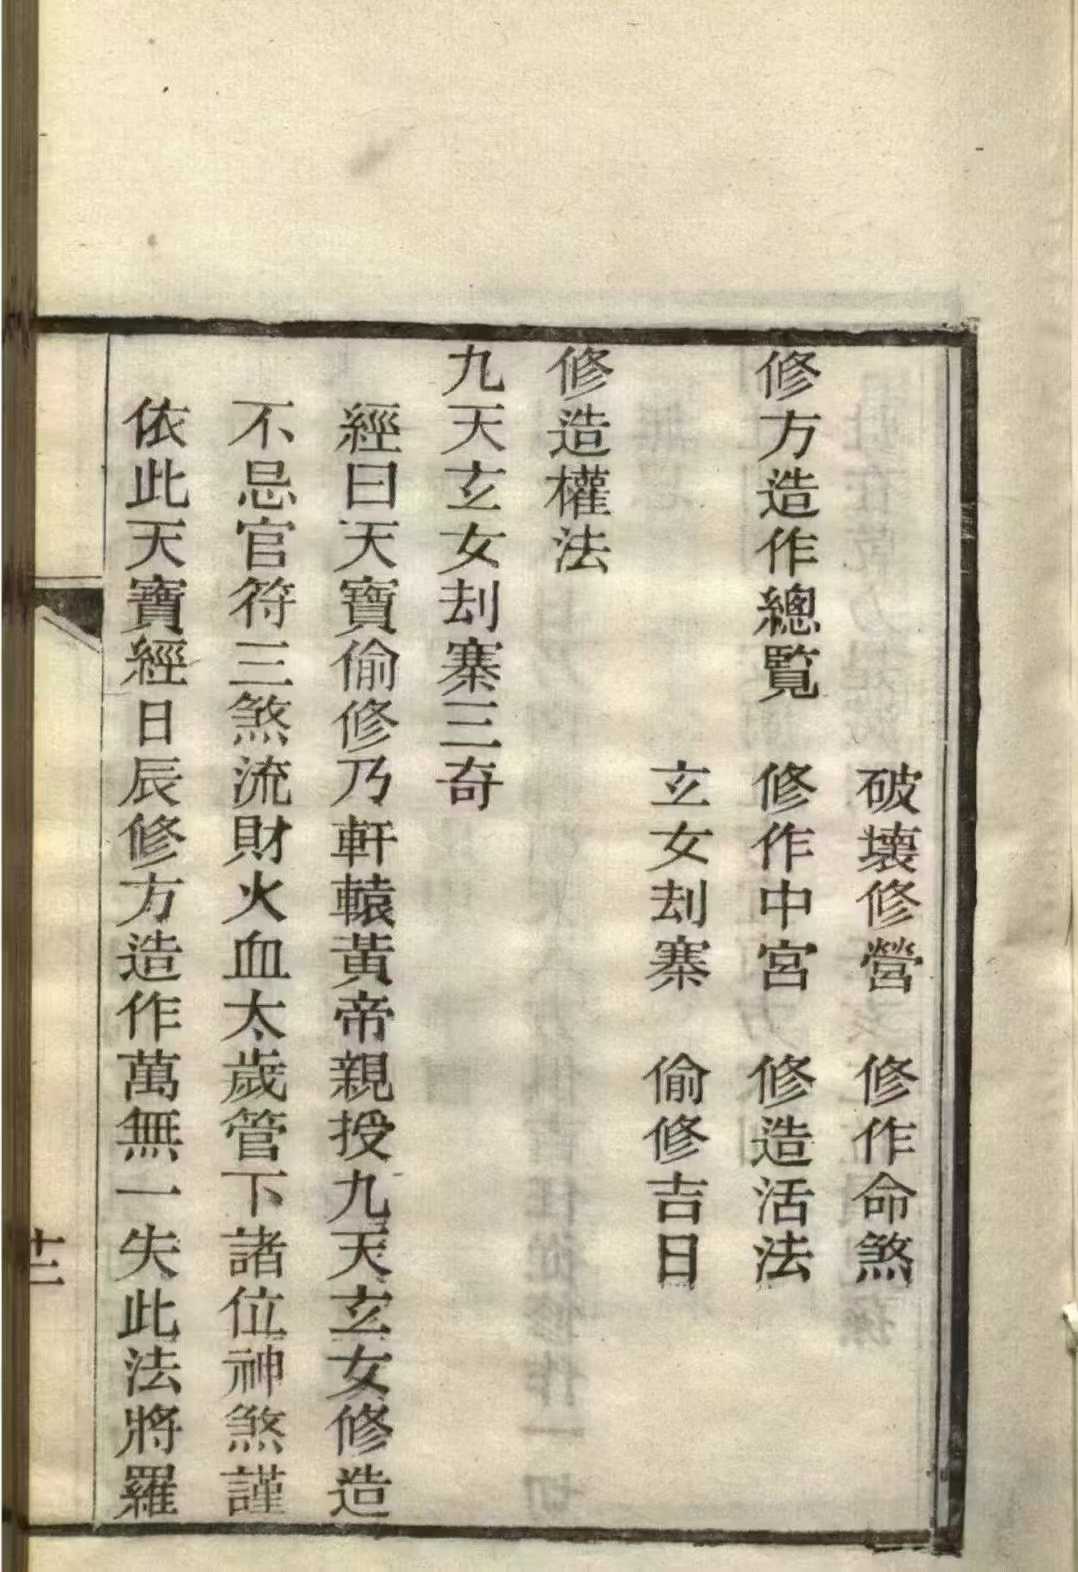 破壞修營　修作命煞
修方造作總覽　修作中宮　修造活法
玄女刦寨　偷修吉日
修造權法
九天玄女刦寨三奇
經曰天寶偷修乃軒轅黃帝親授九天玄女修造
不忌官符三煞流財火血太歲管下諸位神煞謹
依此天寶經日辰修方造作萬無一失此法將羅